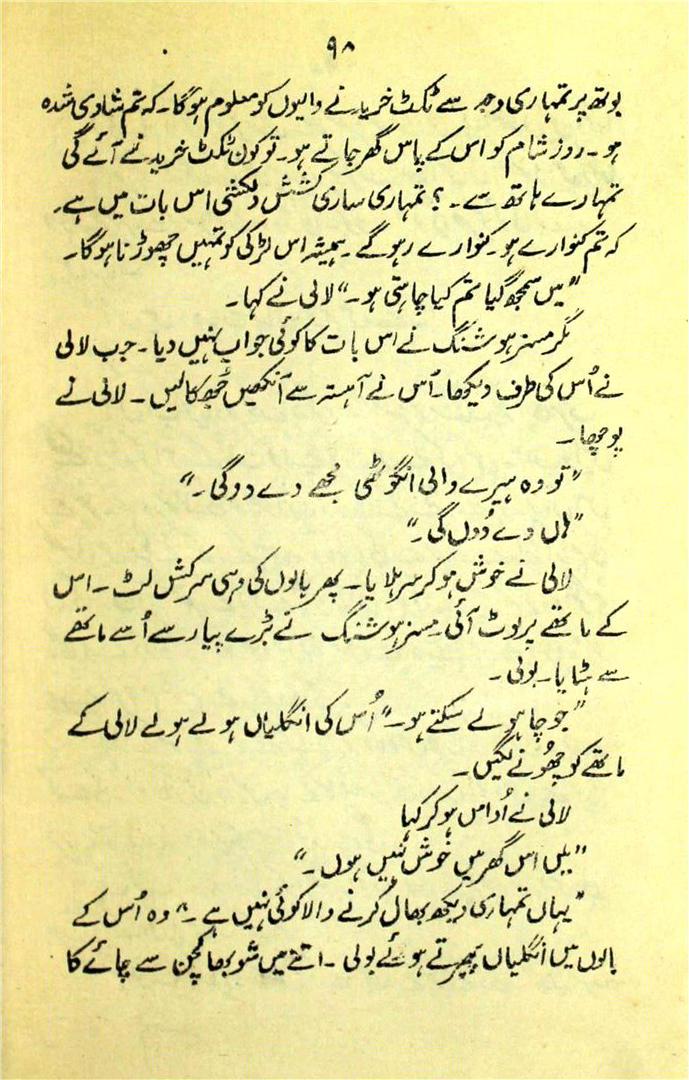 ۹۸
بوتھ پر تمہاری وجہ سے ٹکٹ خریدنے والیوں کو معلوم ہوگا۔ کہ تم شادی شدہ
ہو۔ روز شام کو اس کے پاس گھر جاتے ہو۔ تو کون ٹکٹ خریدنے آئے گی
تمہارے ہاتھ سے۔ ؟ تمہاری ساری کشش دلکشی اس بات میں ہے۔
کہ تم کنوارے ہو۔ کنوارے رہو گے۔ ہمیشہ اس لڑکی کو تمہیں چھوڑنا ہوگا۔
"میں سمجھ گیا تم کیا چاہتی ہو۔" لالی نے کہا۔
مگر مسز ہوشنگ نے اس بات کا کوئی جواب نہیں دیا۔ جب لالی
نے اُس کی طرف دیکھا۔ اُس نے آہستہ سے آنکھیں جُھکالیں۔ لالی نے
پوچھا۔
"تو وہ ہیرے والی انگوٹھی مجھے دے دو گی۔"
"ہاں دے دُوں گی۔"
لالی نے خوش ہو کر سر ہلایا۔ پھر بالوں کی وہی سرکش لٹ۔ اس
کے ماتھے پر لوٹ آئی۔ مسز ہوشنگ نے بڑے پیار سے اُسے ماتھے
سے ہٹایا۔ بولی۔
"جو چاہو لے سکتے ہو۔" اُس کی انگلیاں ہولے ہولے لالی کے
ماتھے کو چھُونے لگیں۔
لالی نے اُداس ہو کر کہا
"میں اس گھر میں خوش نہیں ہوں۔"
"یہاں تمہاری دیکھ بھال کرنے والا کوئی نہیں ہے۔" وہ اُس کے
بالوں میں انگلیاں پھیرتے ہوئے بولی۔ اتنے میں شوبھا کچن سے چائے کا